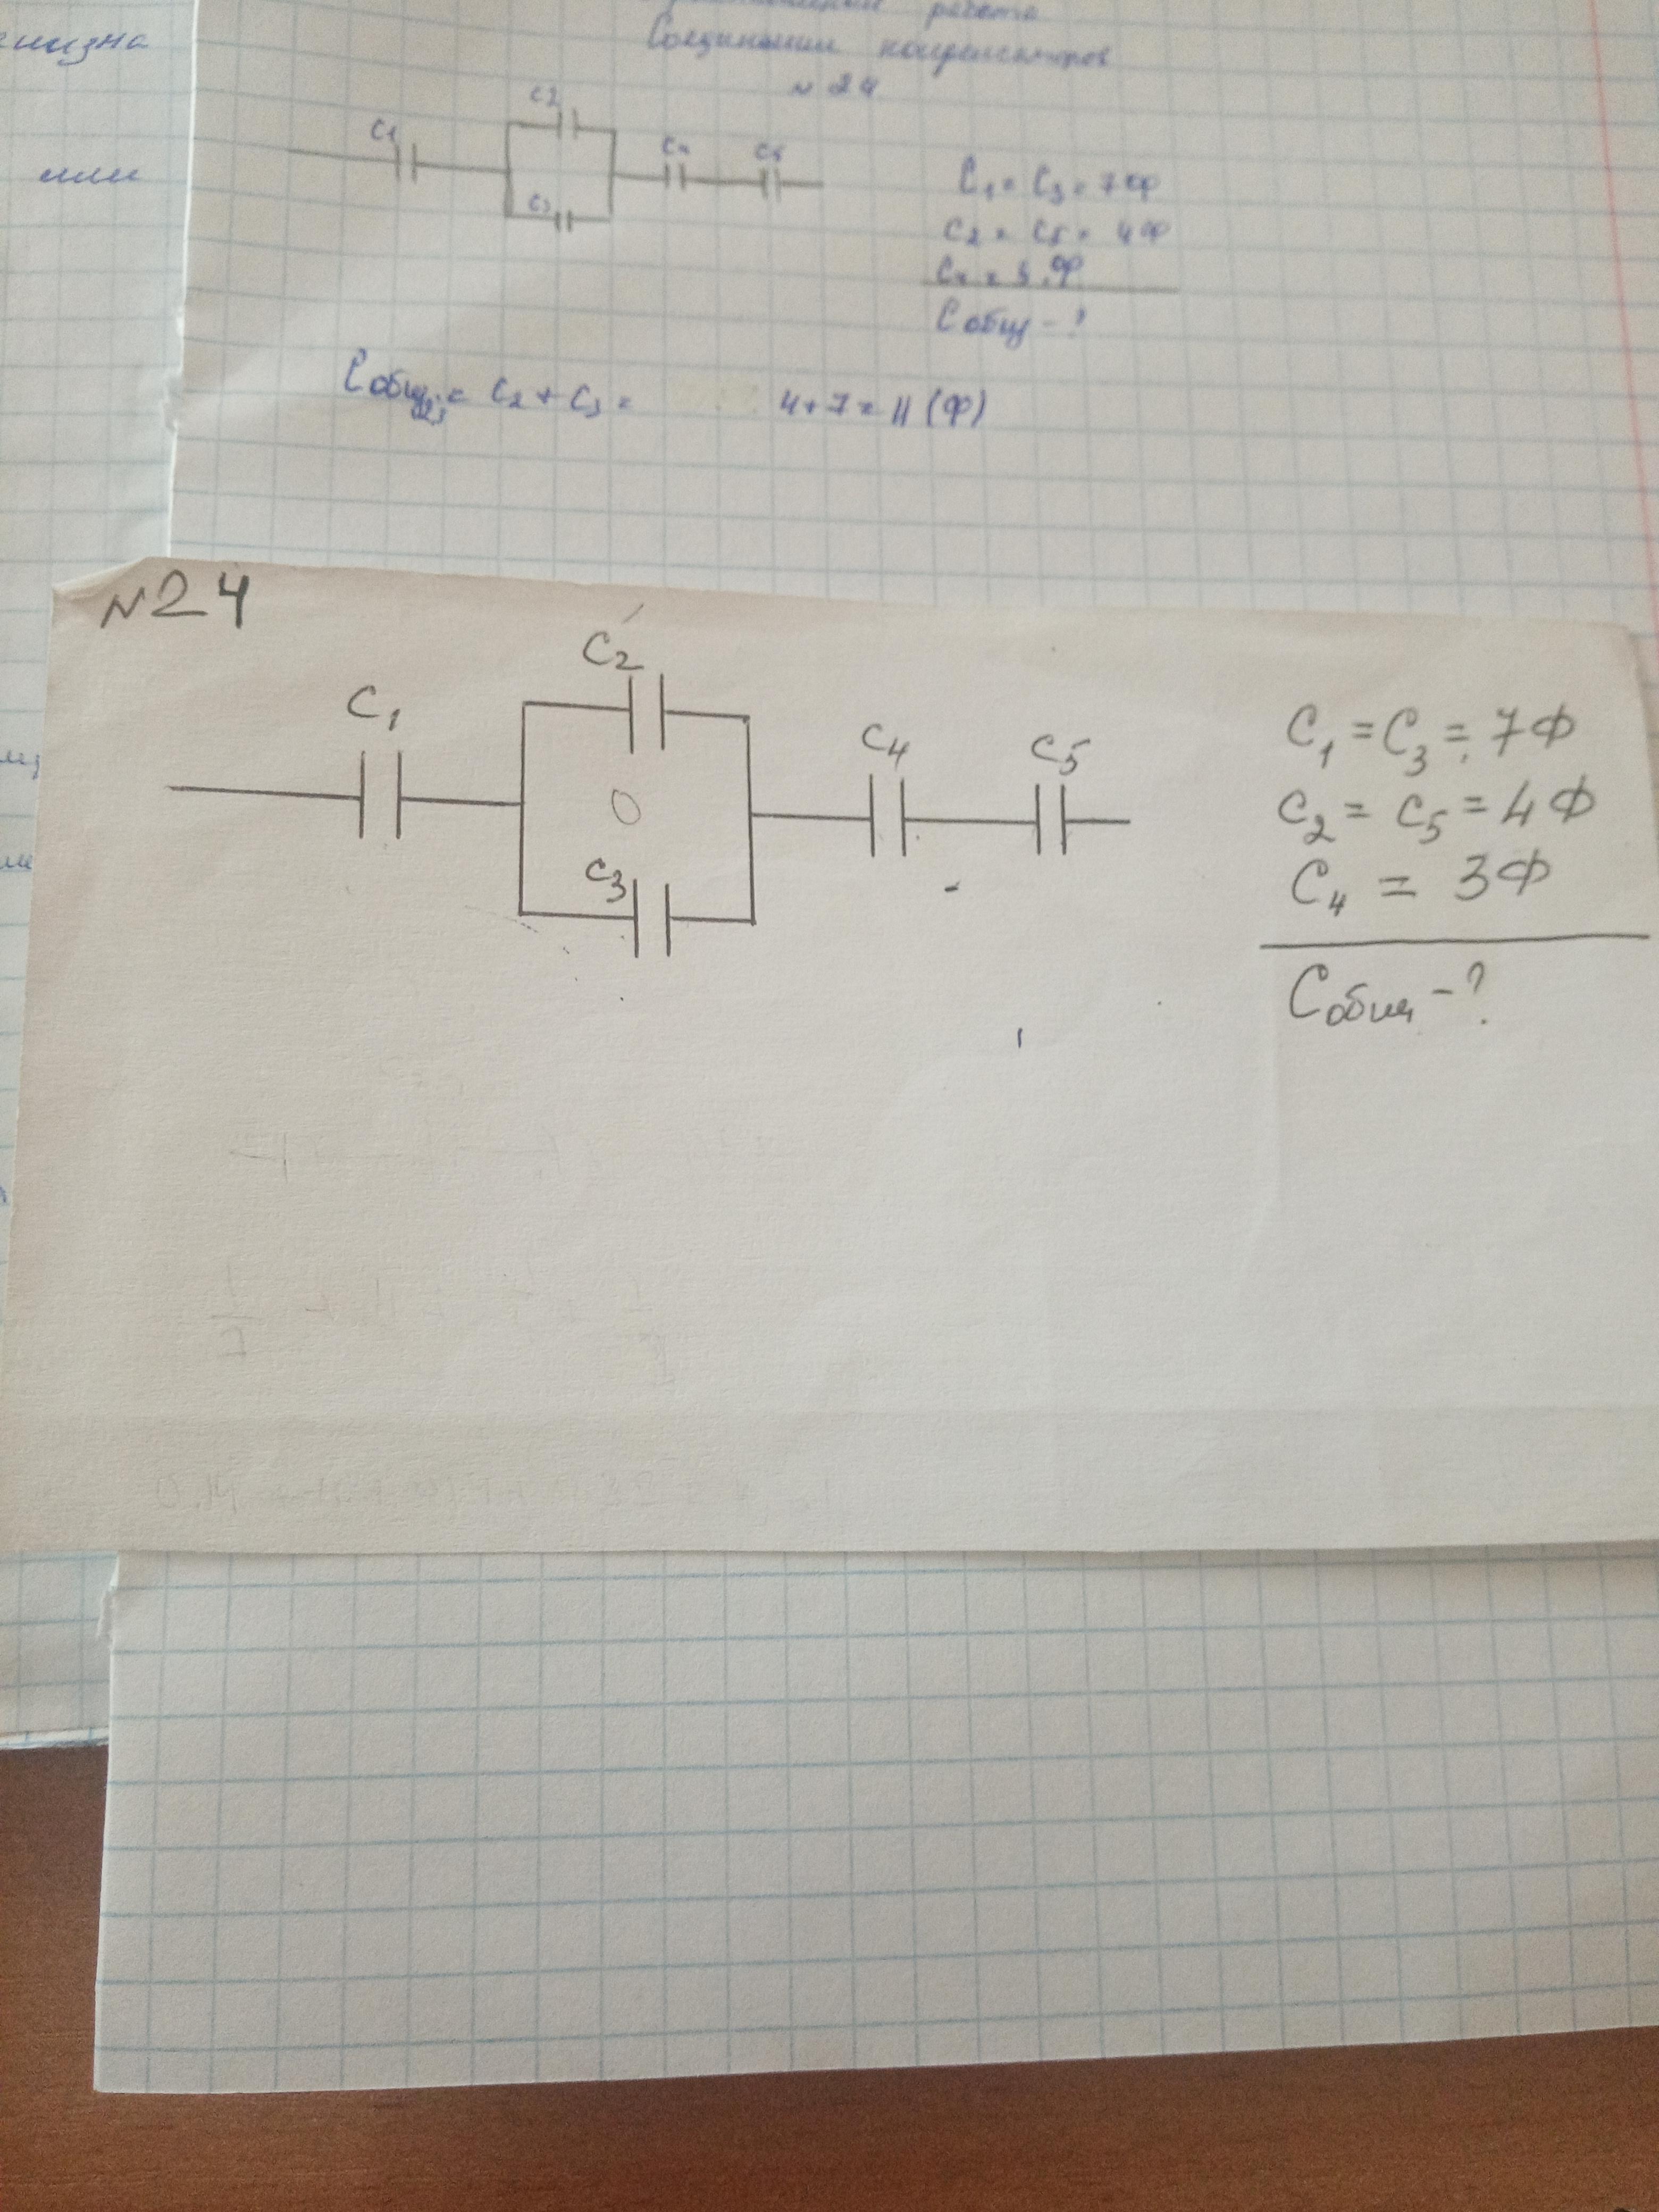 работа
Соединении конденсаторов
N 24
C2
C1
C4 C5
C3
C1 = C3 = 7Ф
C2 = C5 = 4Ф
C4 = 3Ф
Cобщ - ?
Cобщ2,3 = C2 + C3 = 4+7=11 (Ф)
или
N24
C2
C1
C4
C5
C3
C1 = C3 = 7Ф
C2 = C5 = 4Ф
C4 = 3Ф
Cобщ - ?